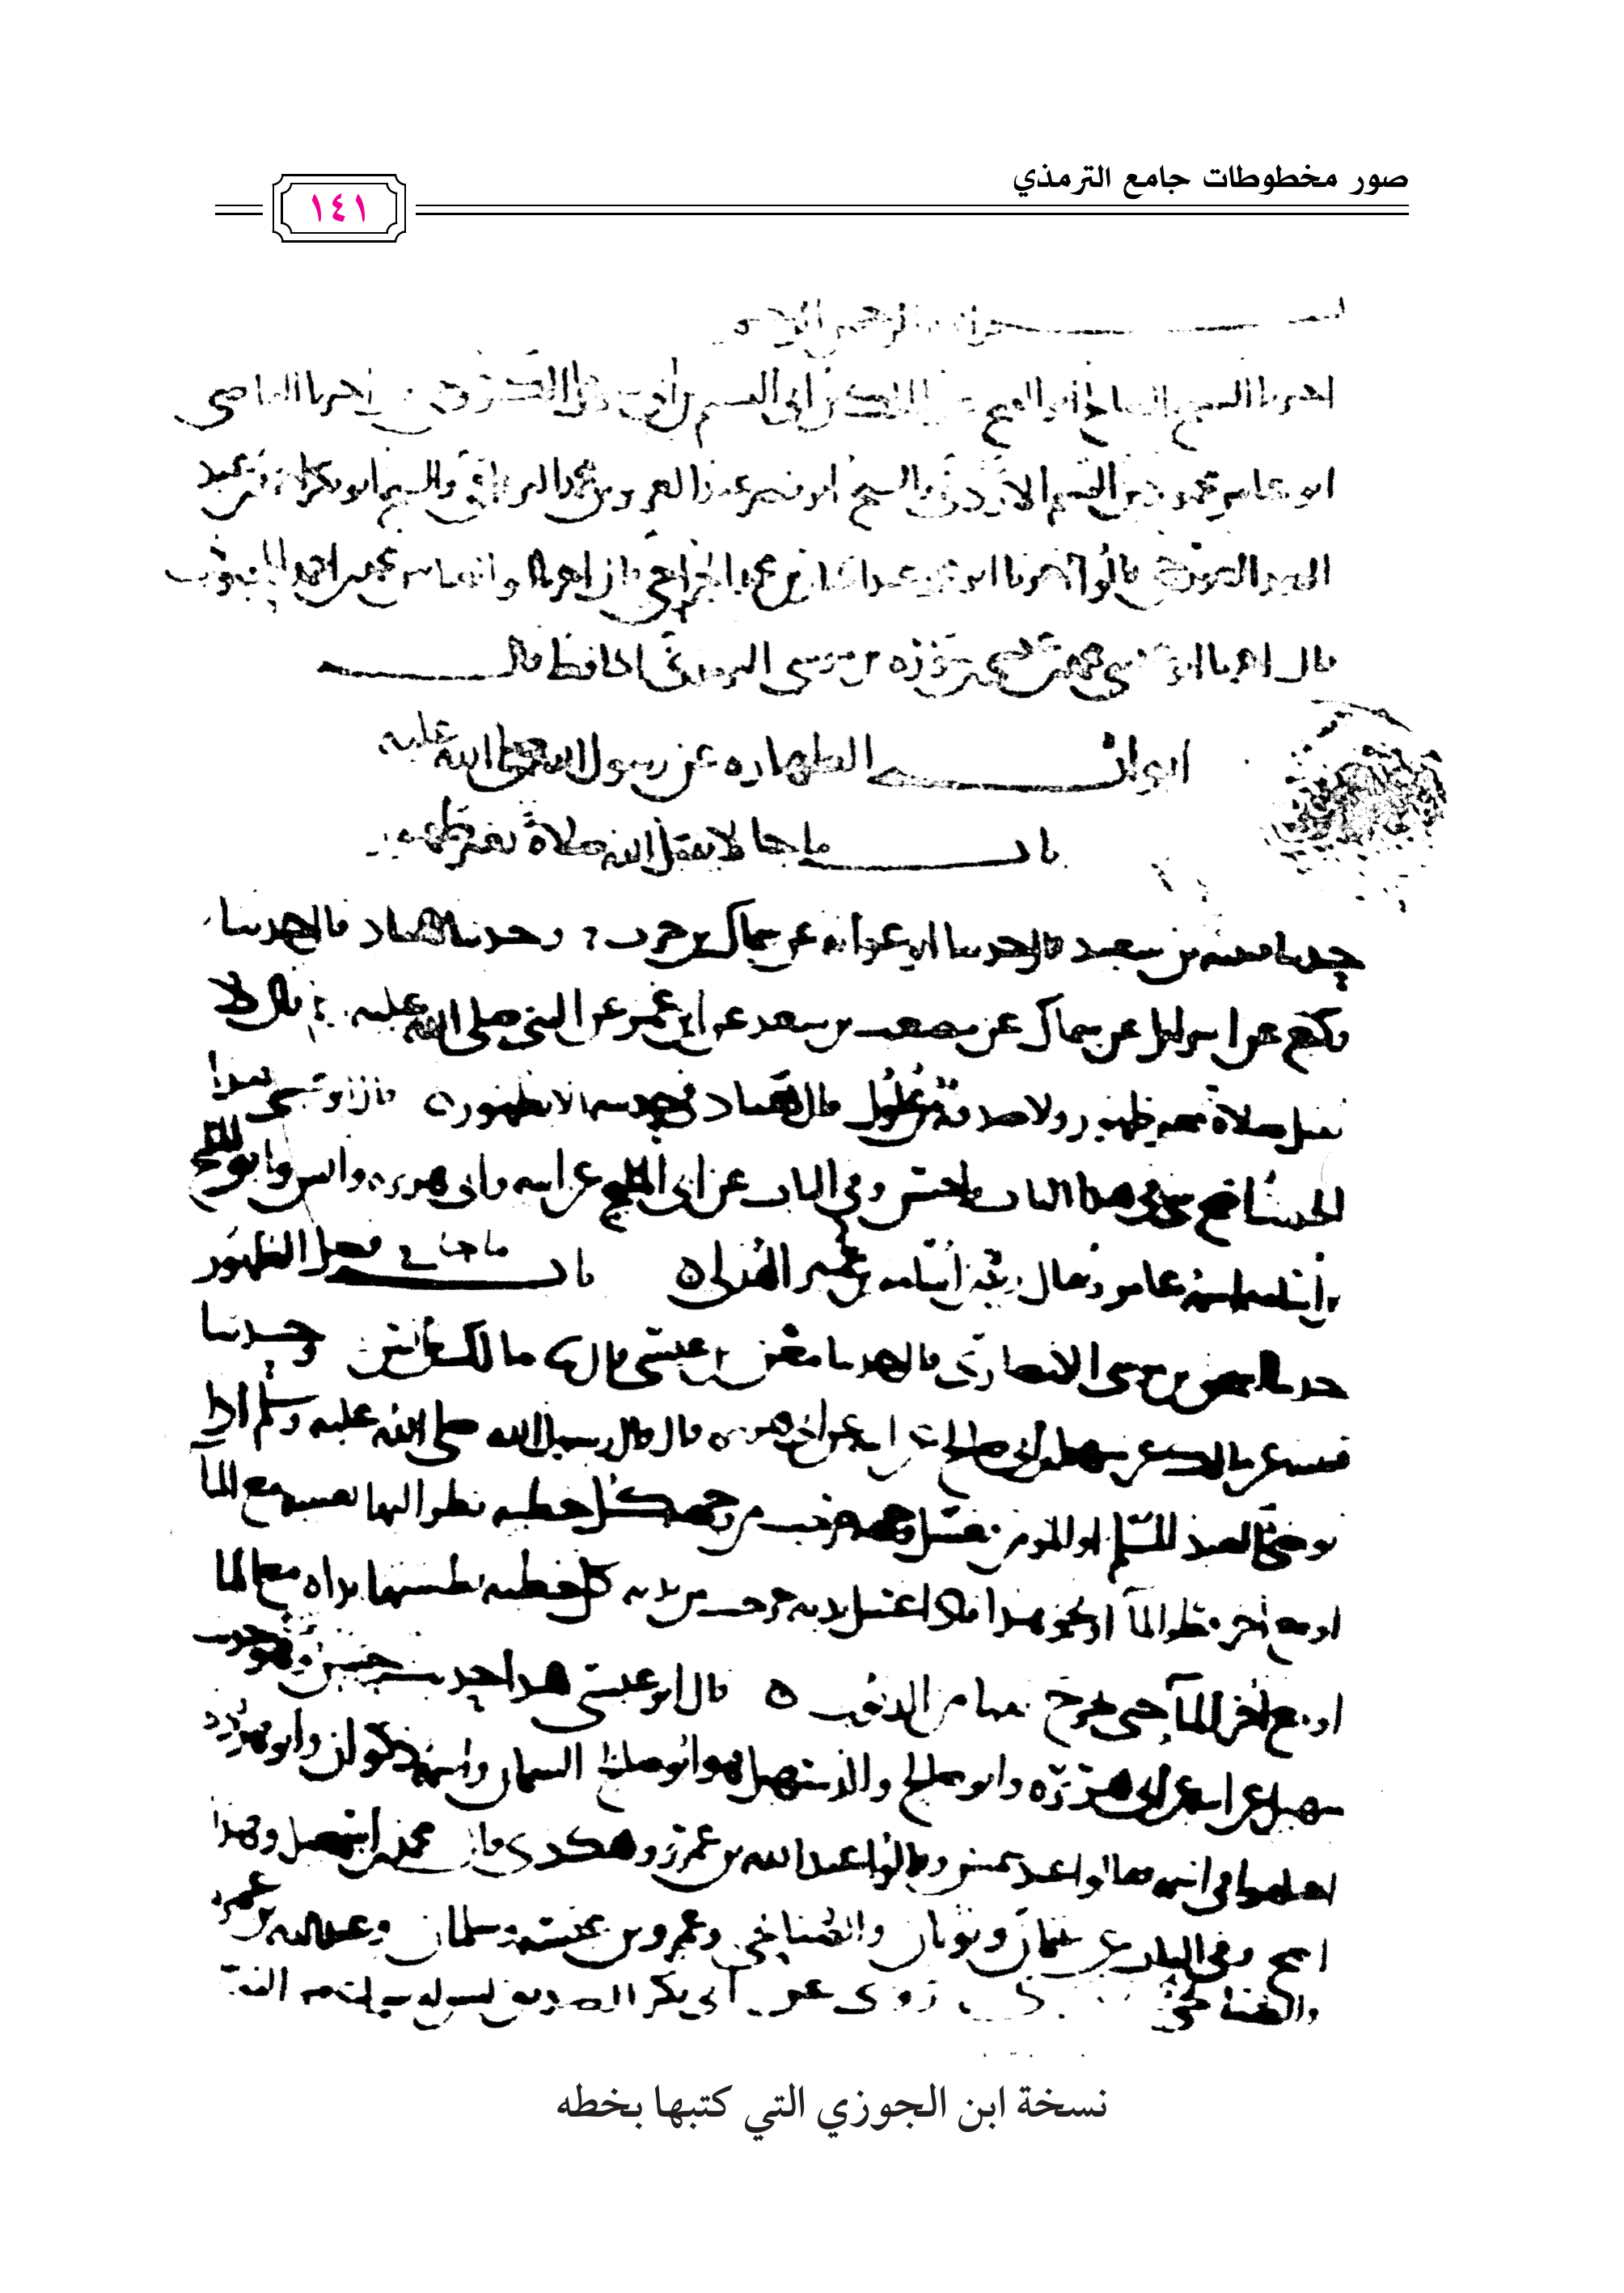 صور مخطوطات جامع الترمذي
١٤١
بسم الله الرحمن الرحيم
اخبرنا الشيخ الصالح ابو الفتح عبد الملك بن ابي القسم بن ابي سهل الكروخي اخبرنا القاضي
ابو عامر محمود بن القسم الازدي والشيخ ابو نصر عبد العزيز بن محمد الترياقي والشيخ ابو بكر احمد بن عبد
الصمد الغورجي قالوا اخبرنا ابو محمد عبد الجبار بن محمد الجراحي اخبرنا ابو العباس محمد بن احمد المحبوبي
قال اخبرنا ابو عيسى محمد بن عيسى بن سورة بن موسى الترمذي الحافظ قال
ابواب الطهارة عن رسول الله صلى الله عليه
باب ما جا لا يقبل الله صلاة بغير طهور
حدثنا قتيبة بن سعيد قال حدثنا ابو عوانة عن سماك بن حرب ح وحدثنا هناد قال حدثنا
وكيع عن اسرايل عن سماك عن مصعب بن سعد عن ابن عمر عن النبي صلى الله عليه قال لا
تقبل صلاة بغير طهور ولا صدقة من غلول قال هناد في حديثه الا بطهور ٥ قال ابو عيسى هذا
الحديث اصح شي في هذا الباب واحسن وفي الباب عن ابي المليح عن ابيه وابي هريرة وانس وابو المليح
بن اسامة اسمه عامر ويقال زيد بن اسامة بن عمير الهذلي ٥ باب ما جا في فضل الطهور
حدثنا اسحق بن موسى الانصاري قال حدثنا معن بن عيسى قال مالك بن انس وحدثنا
قتيبة عن مالك عن سهيل بن ابي صالح عن ابيه عن ابي هريرة قال قال رسول الله صلى الله عليه وسلم اذا
توضا العبد المسلم او المومن فغسل وجهه خرجت من وجهه كل خطية نظر اليها بعينيه مع المآ
او مع اخر قطر المآ او نحو هذا فاذا غسل يديه خرجت من يديه كل خطية بطشتها يداه مع الما
او مع اخر قطر المآ حتى يخرج نقيا من الذنوب ٥ قال ابو عيسى هذا حديث حسن وهو حديث
سهيل عن ابيه عن ابي هريرة وابو صالح والد سهيل هو ابو صالح السمان واسمه ذكوان وابو هريرة
اختلفوا في اسمه فقالوا عبد شمس وقالوا عبد الله بن عمرو وهكذى قال محمد بن اسمعيل وهذا
اصح وفي الباب عن عثمان وثوبان والصنابحي وعمرو بن عبسة وسلمان وعبد الله بن عمرو
والصنابحي روى عن ابي بكر الصديق ليس له سماع من النبي
نسخة ابن الجوزي التي كتبها بخطه